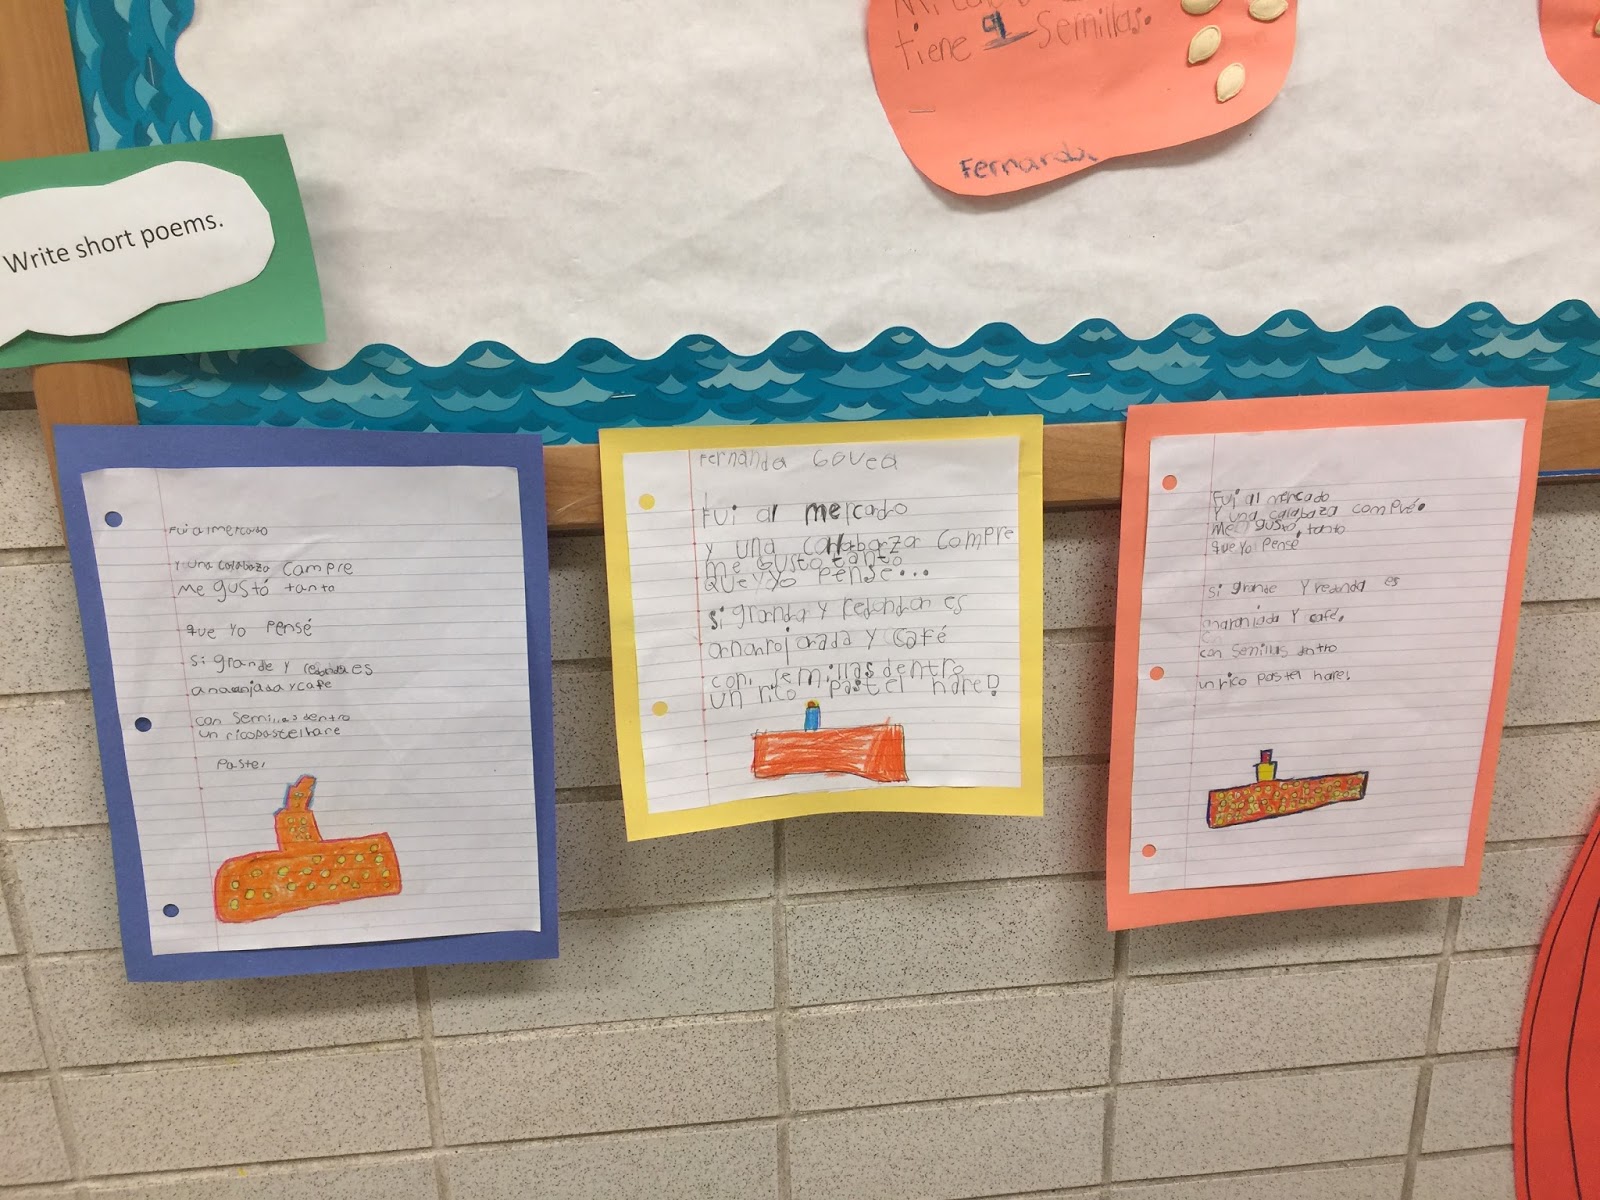 tiene 9 Semillas.
Fernanda
Write short poems.
Fui al mercado
Y una calabaza compre
Me gustó tanto
que Yo Pensé
Si grande y redonda es
anaranjada y cafe
con Semillas dentro
un rico pastel hare
Pastel
Fernanda Govea
Fui al mercado
y una calabaza compre
me gusto tanto
que yo pense...
Si granda y redondan es
ananrojarada y café
con semillas dentro
un rico pastel hare!
Fui al mercado
Y una calabaza compré.
Me gustó tanto
que Yo Pensé
Si grande Y redonda es
anaranjada Y café.
con Semillas dentro
un rico pastel hare!